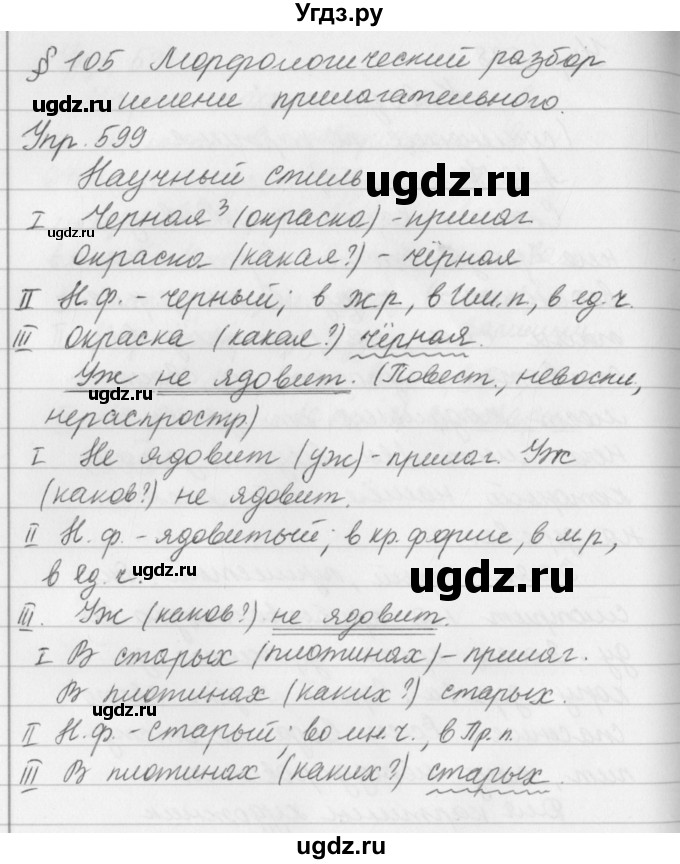 Угдз.ру
§ 105 Морфологический разбор
ugdz.ru имени прилагательного.
Упр. 599
Научный стиль ugdz.ru
I Черная³ (окраска) - прилаг
ugdz.ru
окраска (какая?) - чёрная
II Н.ф. - черный; в ж.р, в Им.п, в ед.ч.
III Окраска (какая?) чёрная.
Уж не ядовит. (Повест., невоскл,
ugdz.ru
нераспростр.)
I Не ядовит (уж) - прилаг. Уж
(каков?) не ядовит.
II Н.ф. - ядовитый; в кр. форме, в м.р,
в ед.ч. ugdz.ru
III. Уж (каков?) не ядовит.
I В старых (плотинах) - прилаг.
В плотинах (каких?) старых.
ugdz.ru
II Н.ф. - старый, во мн.ч., в Пр.п.
III В плотинах (каких?) старых.
ugdz.ru